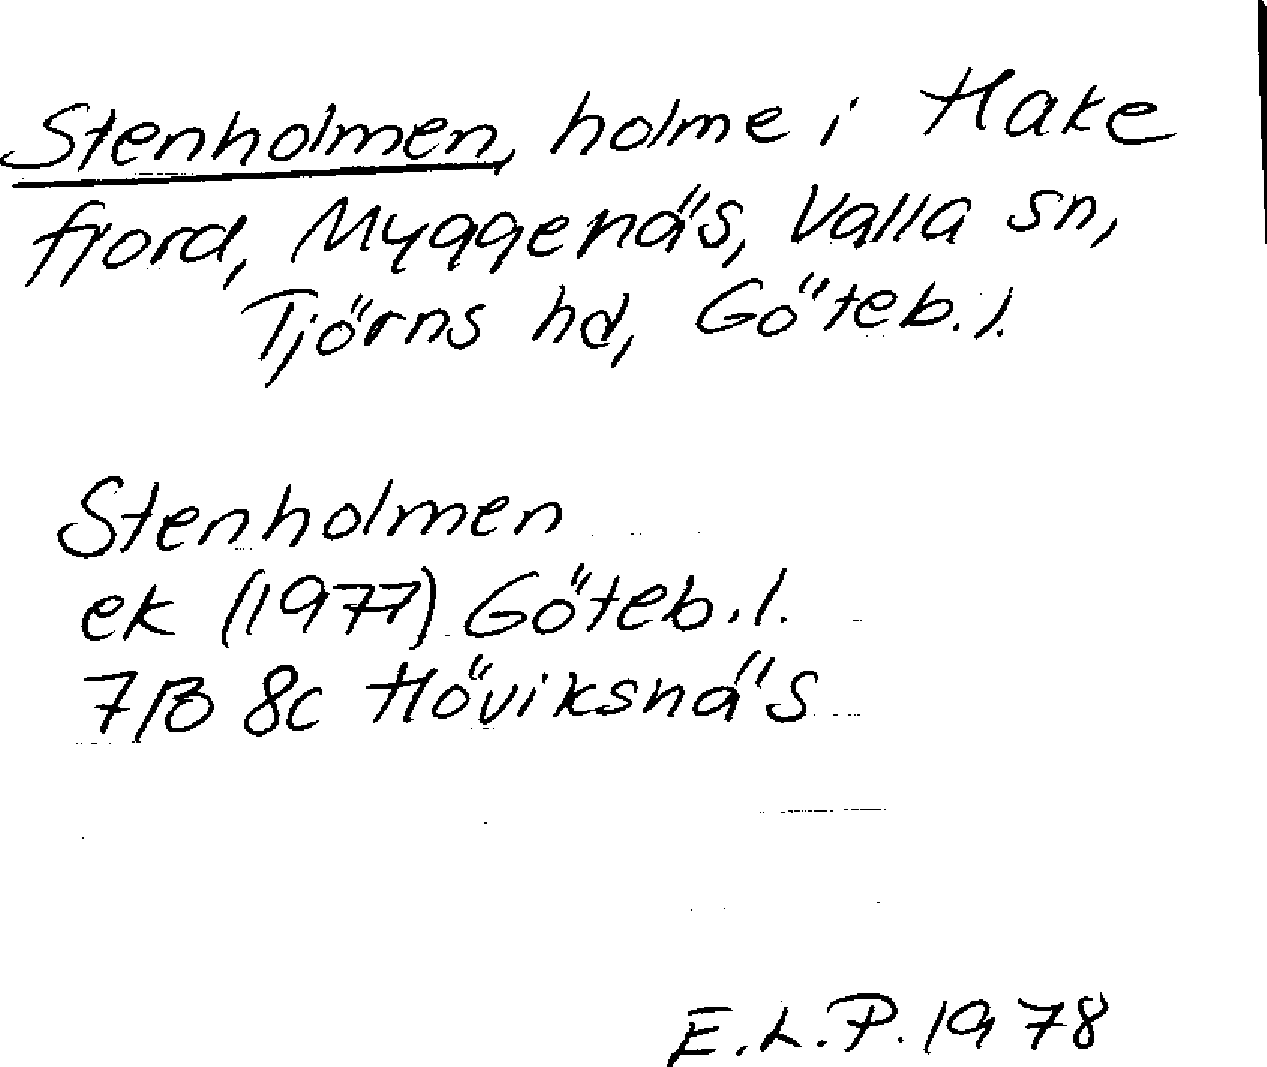 Stenholmen, holme i Hake
fjord, Myggenäs, Valla sn,
Tjörns hd, Göteb.l.
Stenholmen
ek (1977) Göteb.l.
7B 8c Höviksnäs
E.L.P. 1978